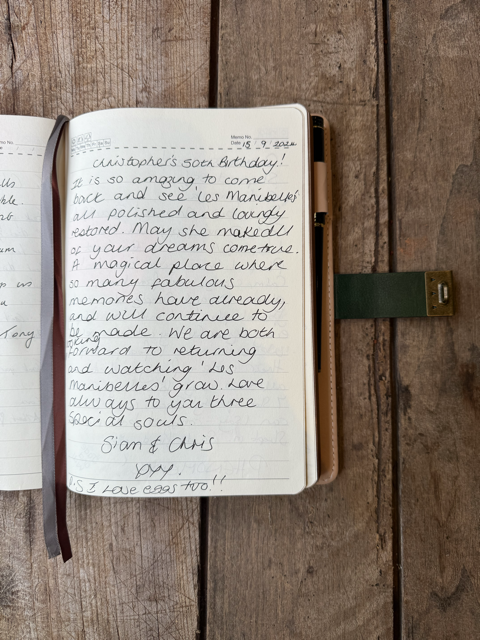 lls
Memo No.
Date 15 / 9 / 2024
Christopher's 50th Birthday!
It is so amazing to come
back and see 'Les Manibelles'
all polished and lovingly
restored. May she make all
of your dreams come true.
A magical place where
so many fabulous
memories have already,
and will continue to
be made. We are both
looking
forward to returning
and watching 'Les
Manibelles' grow. Love
always to you three
special souls.
Sian & Chris
xxx.
P.S I love eggs too!!
Tony